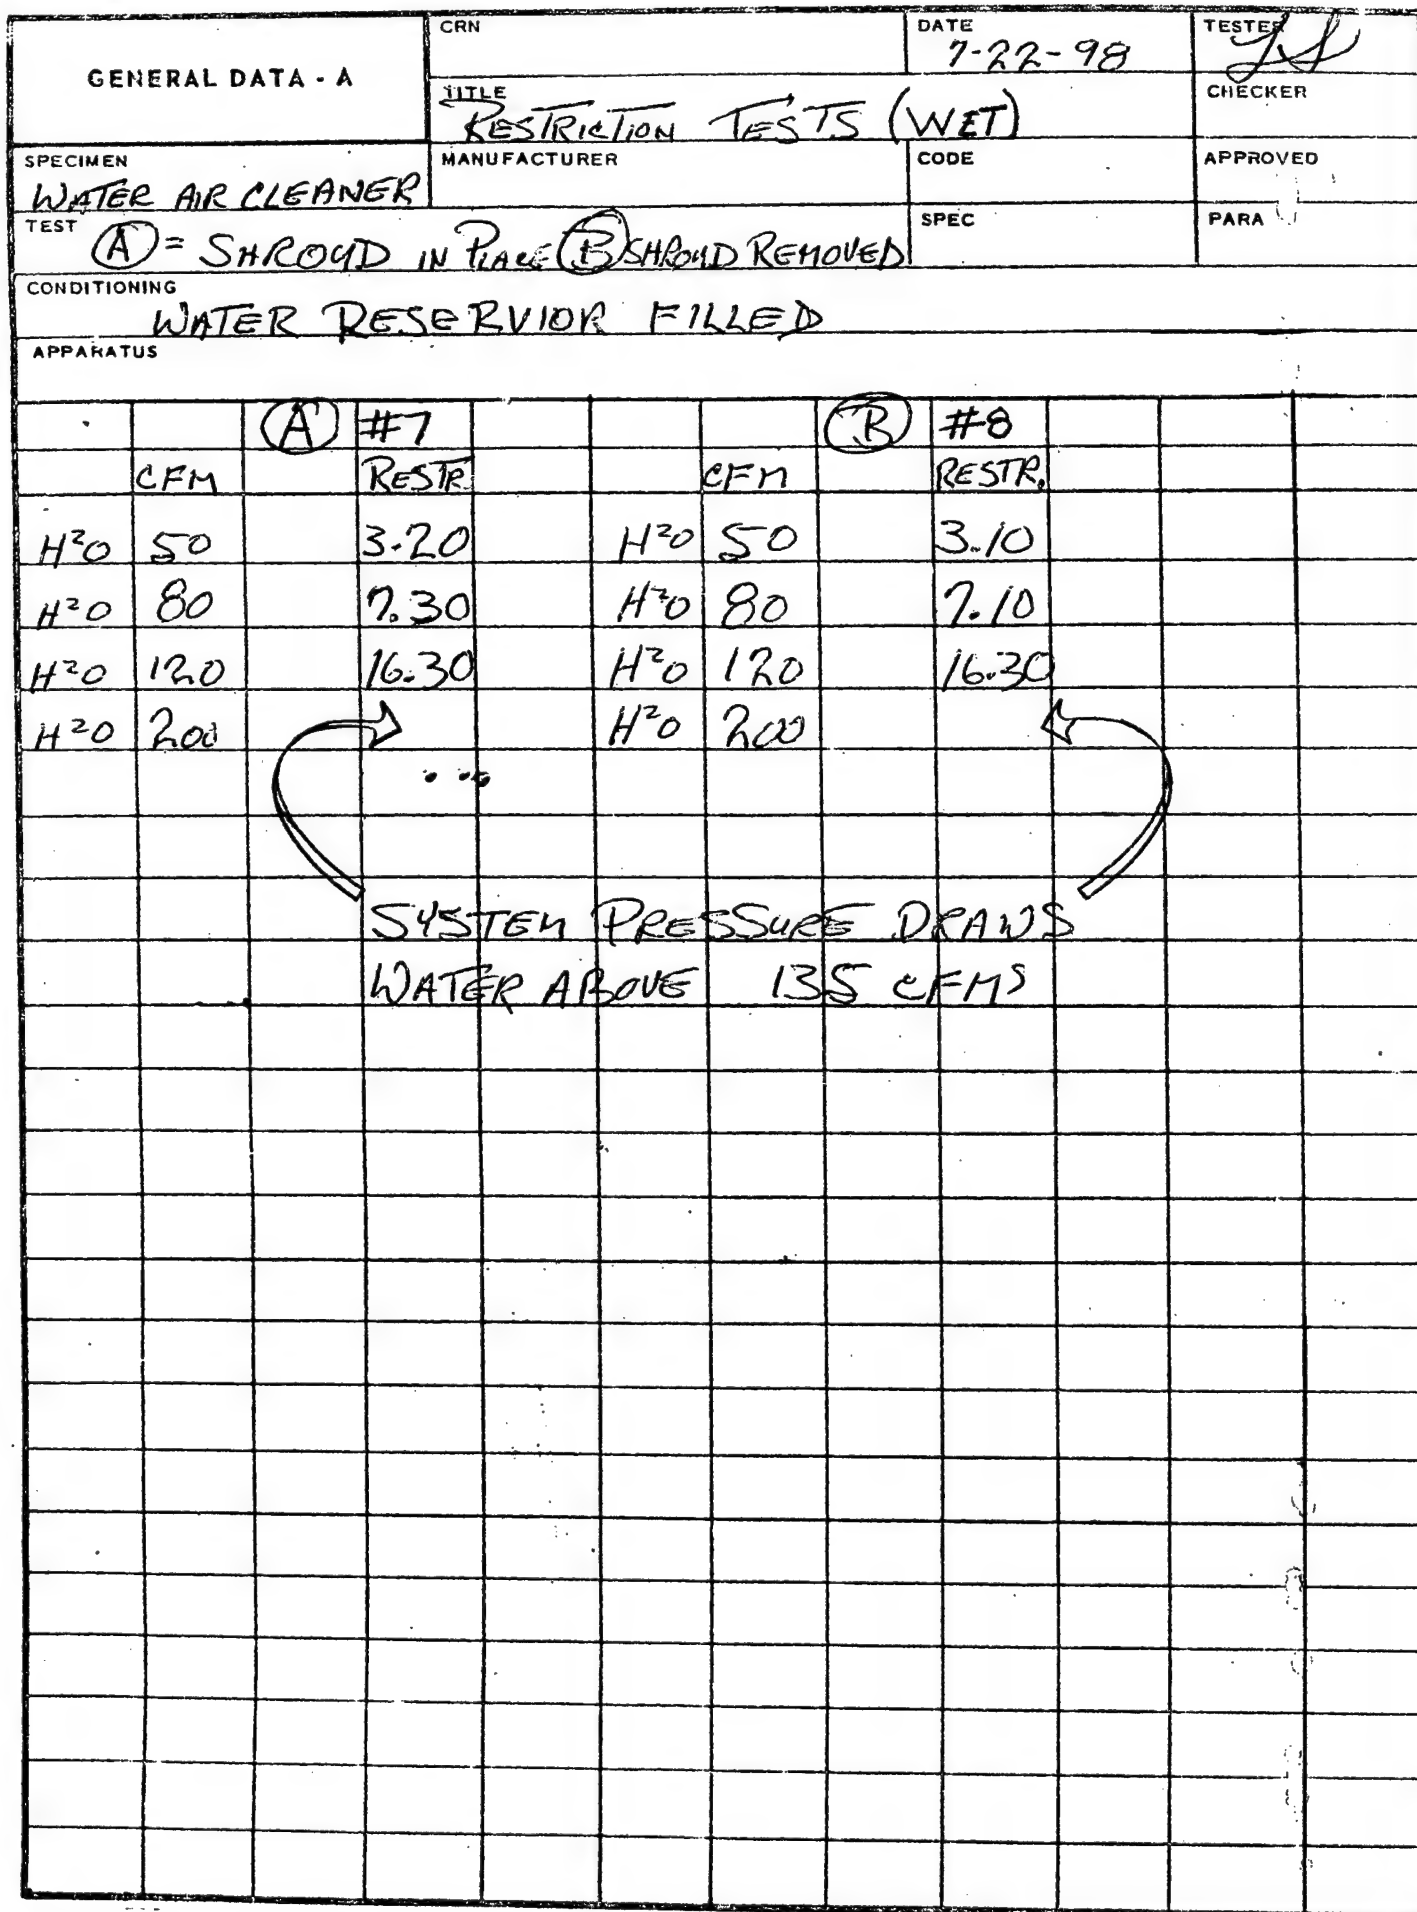 GENERAL DATA - A
CRN
DATE
7-22-98
TESTER
TITLE
RESTRICTION TESTS (WET)
CHECKER
SPECIMEN
WATER AIR CLEANER
MANUFACTURER
CODE
APPROVED
TEST
(A) = SHROUD IN PLACE (B) SHROUD REMOVED
SPEC
PARA
CONDITIONING
WATER RESERVIOR FILLED
APPARATUS
(A) #7 (B) #8
CFM RESTR. CFM RESTR.
H²O 50 3.20 H²O 50 3.10
H²O 80 7.30 H²O 80 7.10
H²O 120 16.30 H²O 120 16.30
H²O 200 H²O 200
SYSTEM PRESSURE DRAWS
WATER ABOVE 135 CFMS